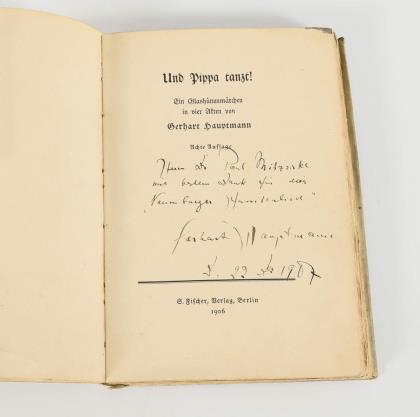 Und Pippa tanzt!
Ein Glashüttenmärchen
in vier Akten von
Gerhart Hauptmann
Achte Auflage
Herrn Dr Paul
mit bestem Dank für
"Naumburger
Gerhart Hauptmann
D. 23 1907
S. Fischer, Verlag, Berlin
1906